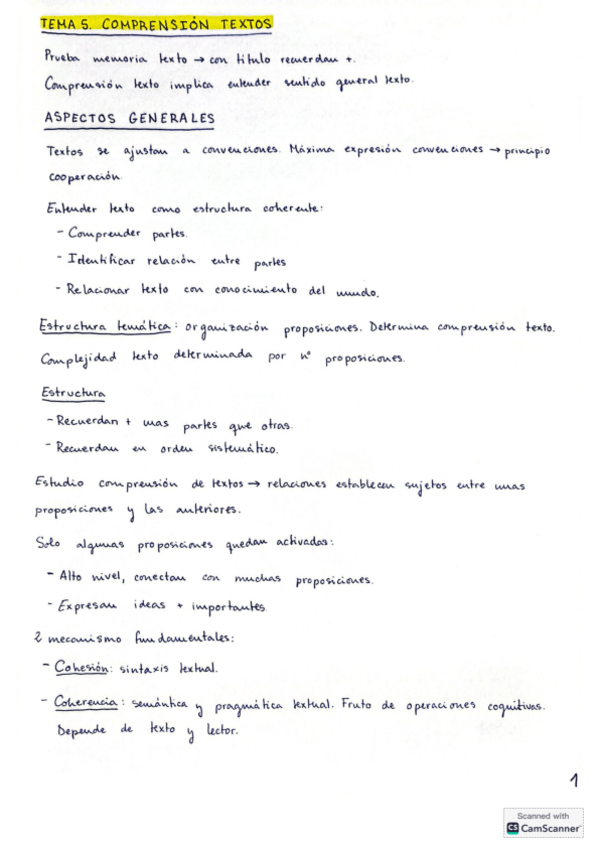 TEMA 5. COMPRENSIÓN TEXTOS
Prueba memoria texto → con título recuerdan +.
Comprensión texto implica entender sentido general texto.
ASPECTOS GENERALES
Textos se ajustan a convenciones. Máxima expresión convenciones → principio
cooperación.
Entender texto como estructura coherente:
- Comprender partes.
- Identificar relación entre partes
- Relacionar texto con conocimiento del mundo.
Estructura temática: organización proposiciones. Determina comprensión texto.
Complejidad texto determinada por nº proposiciones.
Estructura
- Recuerdan + unas partes que otras.
- Recuerdan en orden sistemático.
Estudio comprensión de textos → relaciones establecen sujetos entre unas
proposiciones y las anteriores.
Solo algunas proposiciones quedan activadas:
- Alto nivel, conectan con muchas proposiciones.
- Expresan ideas + importantes.
2 mecanismo fundamentales:
- Cohesión: sintaxis textual.
- Coherencia: semántica y pragmática textual. Fruto de operaciones cognitivas.
Depende de texto y lector.
1
Scanned with
CS CamScanner